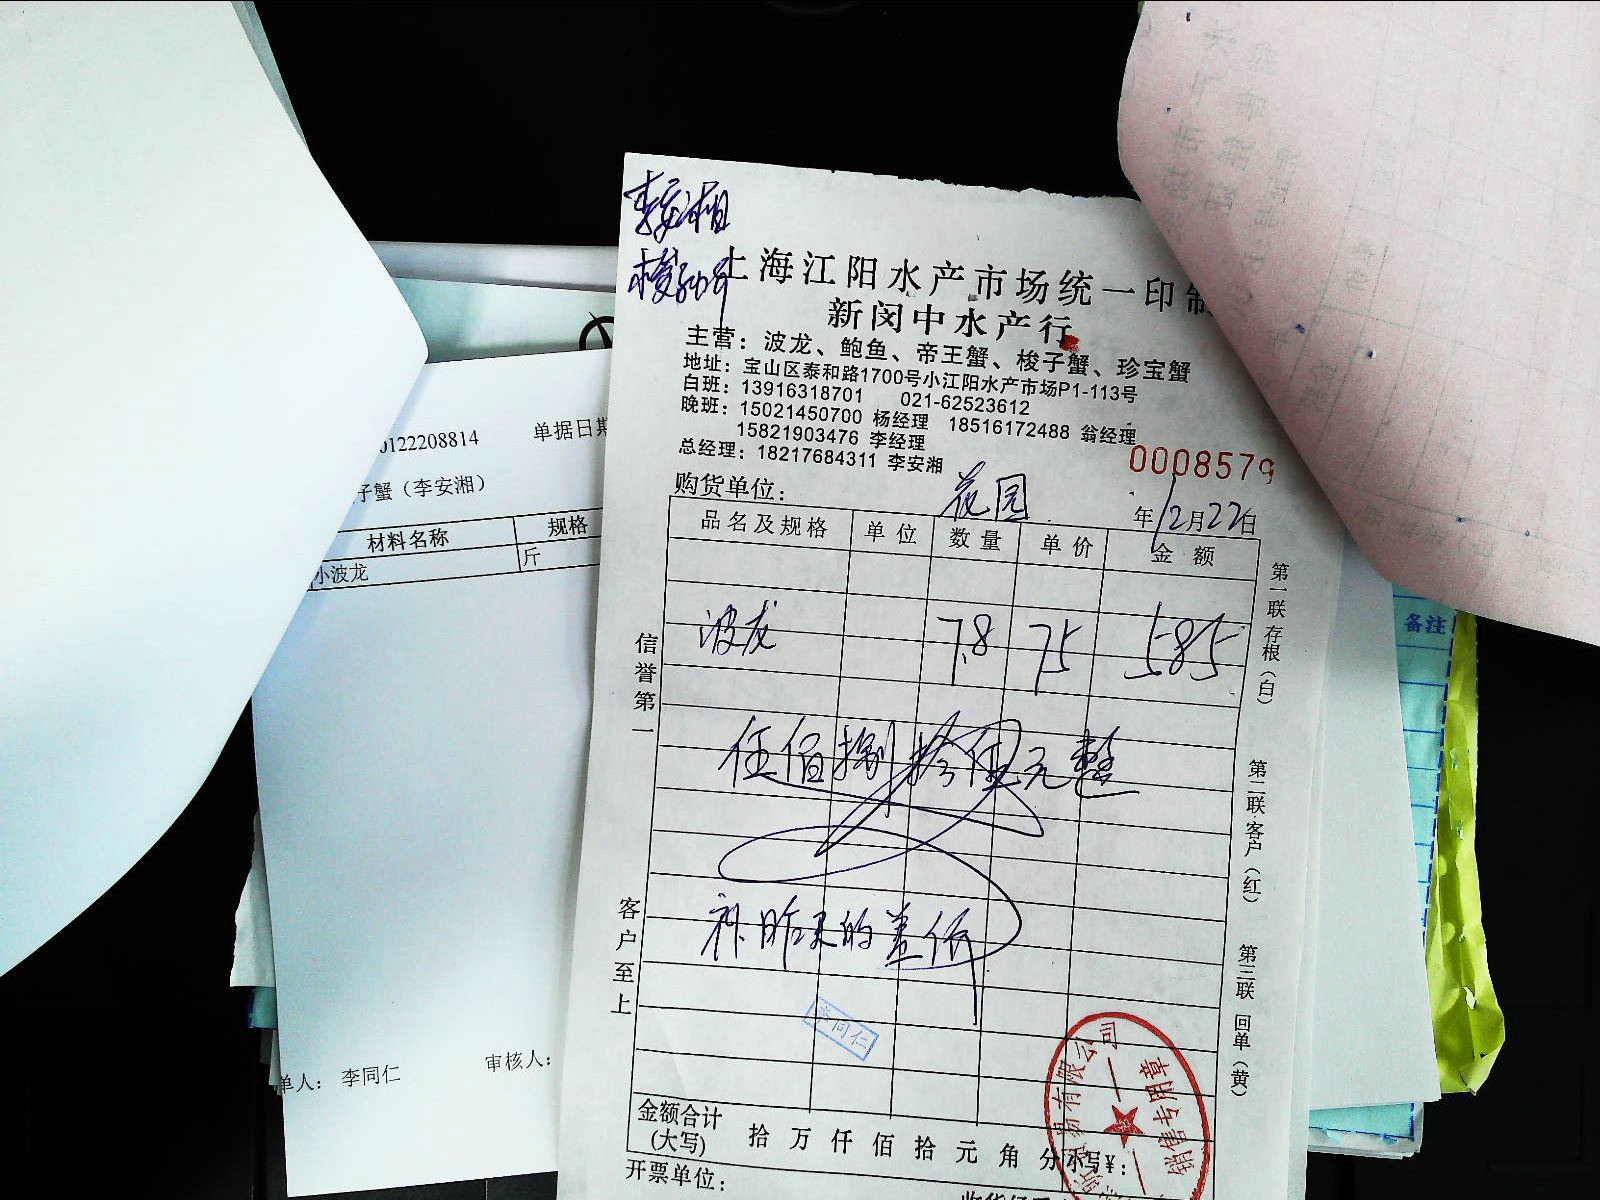 李安湘
梭子蟹
上海江阳水产市场统一印制
新闵中水产行
主营：波龙、鲍鱼、帝王蟹、梭子蟹、珍宝蟹
地址：宝山区泰和路1700号小江阳水产市场P1-113号
白班：13916318701 021-62523612
晚班：15021450700 杨经理 18516172488 翁经理
15821903476 李经理
总经理：18217684311 李安湘
0008579
购货单位： 花园 年12月22日
品名及规格 单位 数量 单价 金额
波龙 7.8 75 585
伍佰捌拾伍元整
补昨天的差价
李同仁
金额合计
(大写) 拾 万 仟 佰 拾 元 角 分 小写¥：
开票单位：
信誉第一
客户至上
第一联 存根（白）
第二联 客户（红）
第三联 回单（黄）
易有限公司
销售专用章
0122208814 单据日期
子蟹（李安湘）
材料名称 规格
小波龙 斤
单人： 李同仁 审核人：
备注